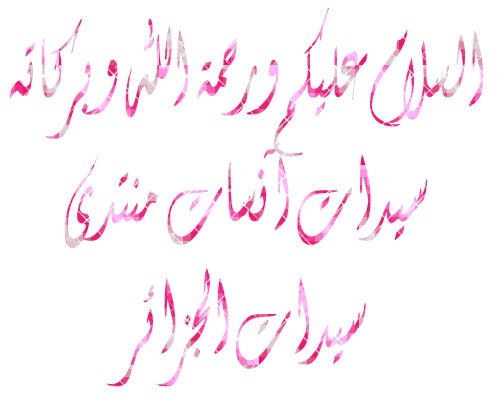 السلام عليكم ورحمة الله وبركاته
سيدات آنسات منتدى
سيدات الجزائر